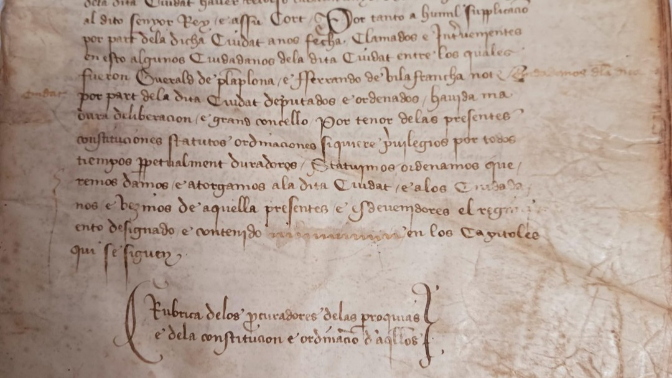 al dito senyor Rey / e assu Cort / Por tanto a humil supplicacio
por part dela dicha Ciudat anos fecha. Clamados e Intervenientes
en esto algunos Ciudadanos dela dita Ciudat entre los quales
fueron Guerald de / e
por part dela dita Ciudat deputados e ordenados / havida ma
dura deliberacion / e grand concello. Por tenor delas presentes
constituciones statutos ordinaciones siquiere privilegios por todos
tiempos perpetualment duradoros / Statuimos ordenamos que
remos damos / e atorgamos ala dita Ciudat / e alos
nos e vezinos de aquella presentes / e Esdevenidores el
ento designado e contenido en los Capitoles
qui se siguen
Rubrica delos procuradores delas proquias
e dela constitucion e ordinacio d'aquellos